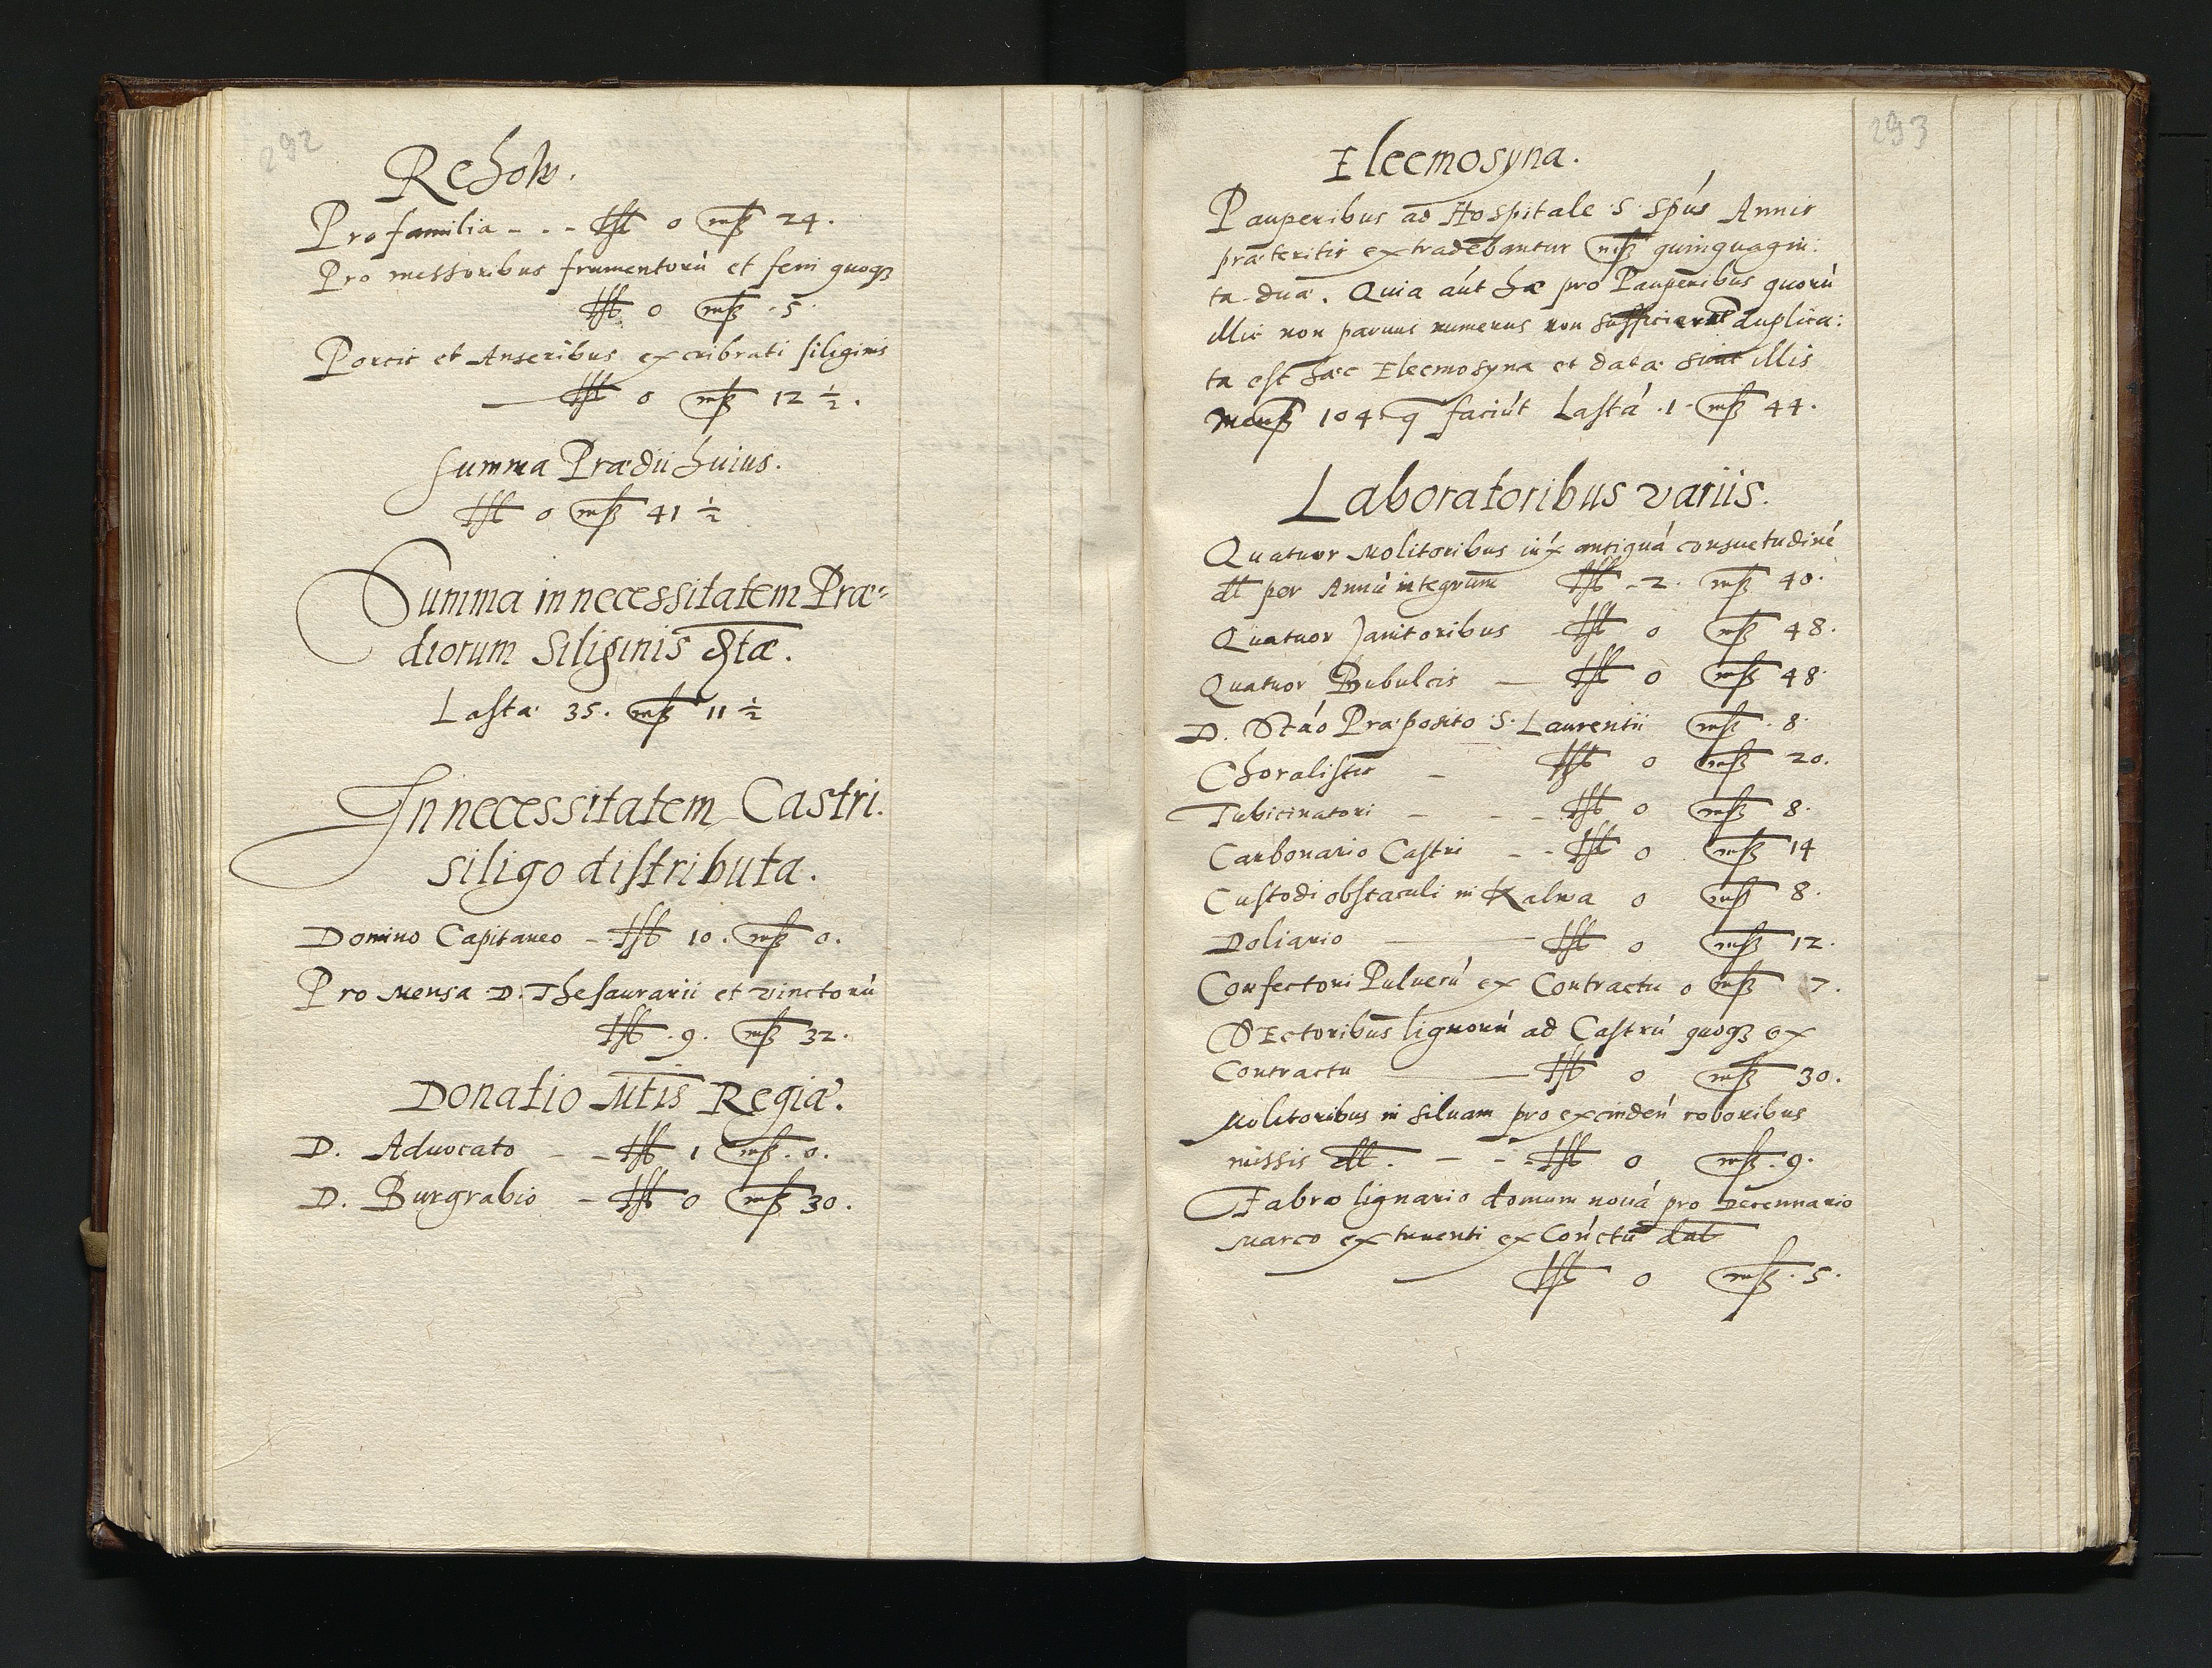 292
Rehow.
Pro familia - - - Lst 0 mẽß 24.
Pro messoribus frumentorú et feni quoqʒ
Lst 0 mẽß 5
Porcis et Anseribus excribrati siliginis
Lst 0 mẽß 12 ½.
Summa Prædii huius.
Lst 0 mẽß 41 ½
Summa in necessitatem Præ=
diorum Siliginis
Lasta 35. mẽß 11 ½
In necessitatem Castri.
siligo distributa.
Domino Capitaneo - Lst 10. mẽß 0.
Pro Mensa D: Thesaurarii et vinctorú
Lst .9. mẽß 32.
Donatio Mtis Regiæ.
D. Advocato - - Lst 1 mẽß. 0.
D. Burgrabio - Lst 0 mẽß 30.
293
Eleemosyna.
Pauperibus ad Hospitale S. Spús Annis
præteritis extradebantur mẽß quinquagin:
ta duæ. Quia aút hæ pro Pauperibus quorú
illic non parvus numerus non sufficierat duplica:
ta est hæc Eleemosyna et data sint illis
menß 104. q faciút Lastá .1. mẽß 44.
Laboratoribus variis.
Quatuor Molitoribus iúx antiquá consuetudiné
dt per Annú integrum Lst - 2. mẽß 40.
Quatuor Janitoribus - Lst 0 mẽß 48.
Quatuor Bubulcis — Lst 0 mẽß 48.
D. Stáo Præposito S. Laurentii mẽß. 8.
Choralistis - Lst 0 mẽß 20.
Tubicinatori - - - Lst 0 mẽß 8.
Carbonario Castri - - Lst 0 mẽß 14
Custodi obstaculi in Kalwa 0 mẽß 8.
Doliario — Lst 0 mẽß 12.
Confectori Pulverú ex Contractu 0 mẽß 7.
Sectoribus lignorú ad Castrú quoqʒ ex
Contractu — Lst 0 mẽß 30.
Molitoribus in silvam pro excindeń roboribus
missis dt. - - - Lst 0 mẽß. 9.
Fabro lignario domum nová pro Decennario
Marco extruenti ex Cońctu dat
Lst 0 mẽß. 5.